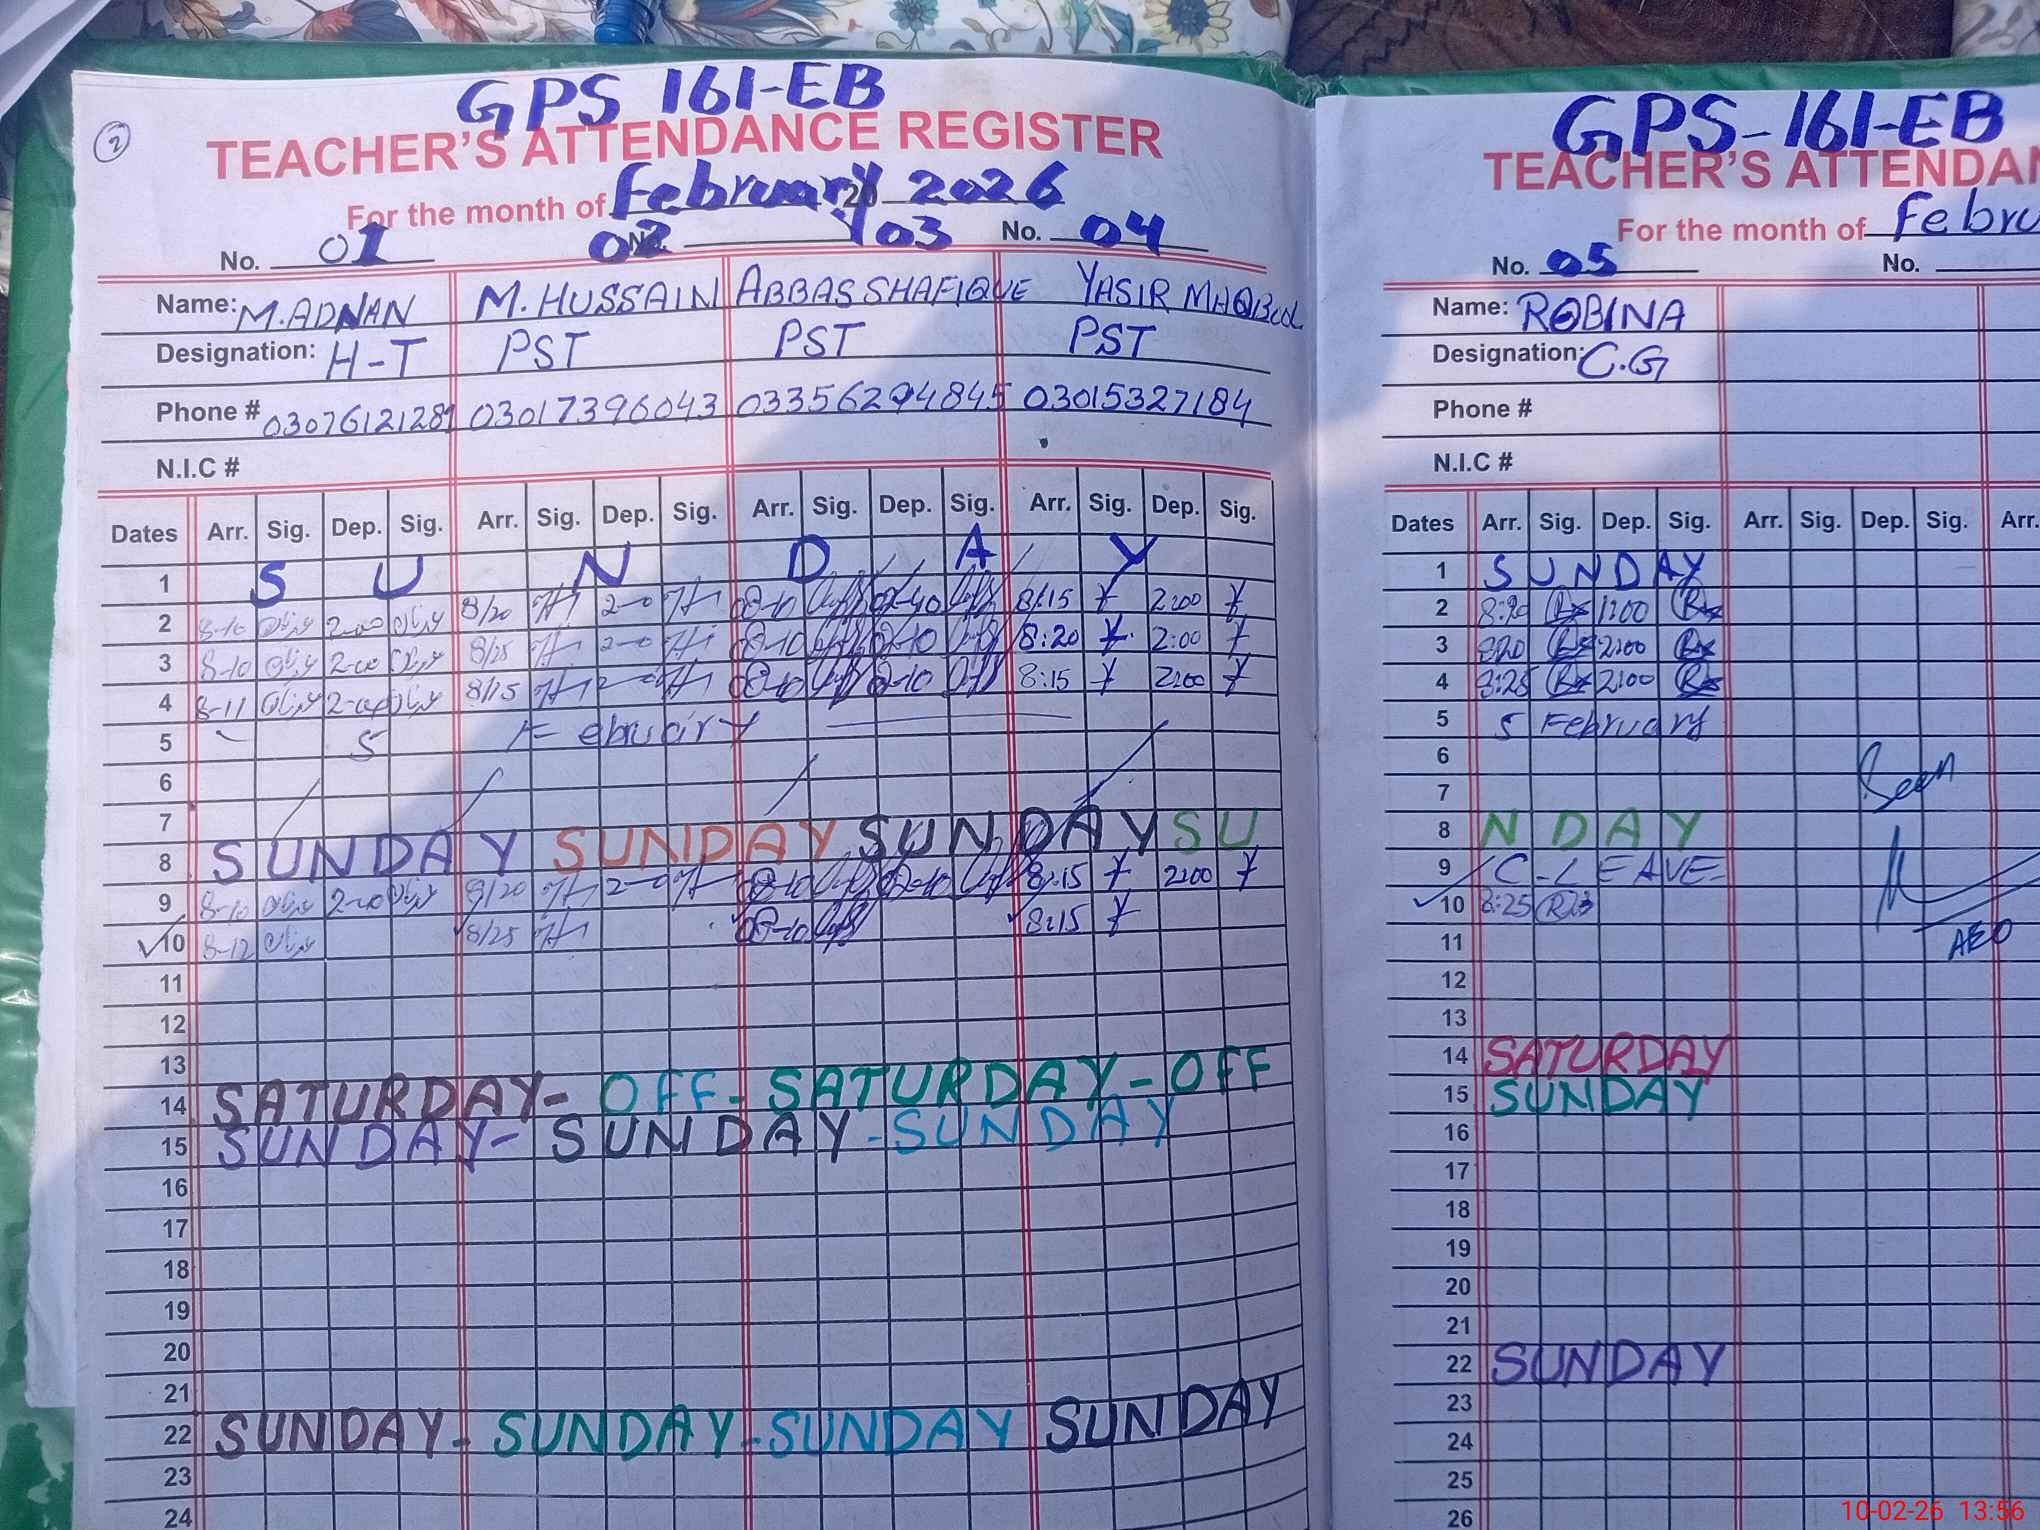 GPS 161-EB
2
TEACHER'S ATTENDANCE REGISTER
For the month of February 20 2026
No. 01 02 No. 03 No. 04
Name: M.ADNAN M.HUSSAIN ABBAS SHAFIQUE YASIR MAQBOOL
Designation: H-T PST PST PST
Phone # 03076121281 03017396043 03356294845 03015327184
N.I.C #
Dates Arr. Sig. Dep. Sig. Arr. Sig. Dep. Sig. Arr. Sig. Dep. Sig. Arr. Sig. Dep. Sig.
1 S U N D A Y
2 8-10 2-00 8/20 2-0 08-10 8:15 2:00
3 8-10 2-00 8/25 2-0 08-10 02-10 8:20 2:00
4 8-11 2-00 8/15 2-0 08-10 02-10 8:15 2:00
5 5 February
6
7
8 SUNDAY SUNDAY SUNDAY SU
9 8-10 2-00 8/20 2-0 08-10 02-10 8:15 2:00
10 8-12 8/25 08-10 8:15
11
12
13
14 SATURDAY- OFF - SATURDAY - OFF
15 SUNDAY- SUNDAY - SUNDAY
16
17
18
19
20
21
22 SUNDAY - SUNDAY - SUNDAY SUNDAY
23
24
GPS-161-EB
TEACHER'S ATTENDAN
For the month of Febru
No. 05 No.
Name: ROBINA
Designation: C.G
Phone #
N.I.C #
Dates Arr. Sig. Dep. Sig. Arr. Sig. Dep. Sig. Arr.
1 SUNDAY
2 8:20 1:00
3 8:20 2:00
4 8:25 2:00
5 5 February
6
7
Seen
8 N DAY
9 C-LEAVE
10 8:25
11
AEO
12
13
14 SATURDAY
15 SUNDAY
16
17
18
19
20
21
22 SUNDAY
23
24
25
26
10-02-26 13:56